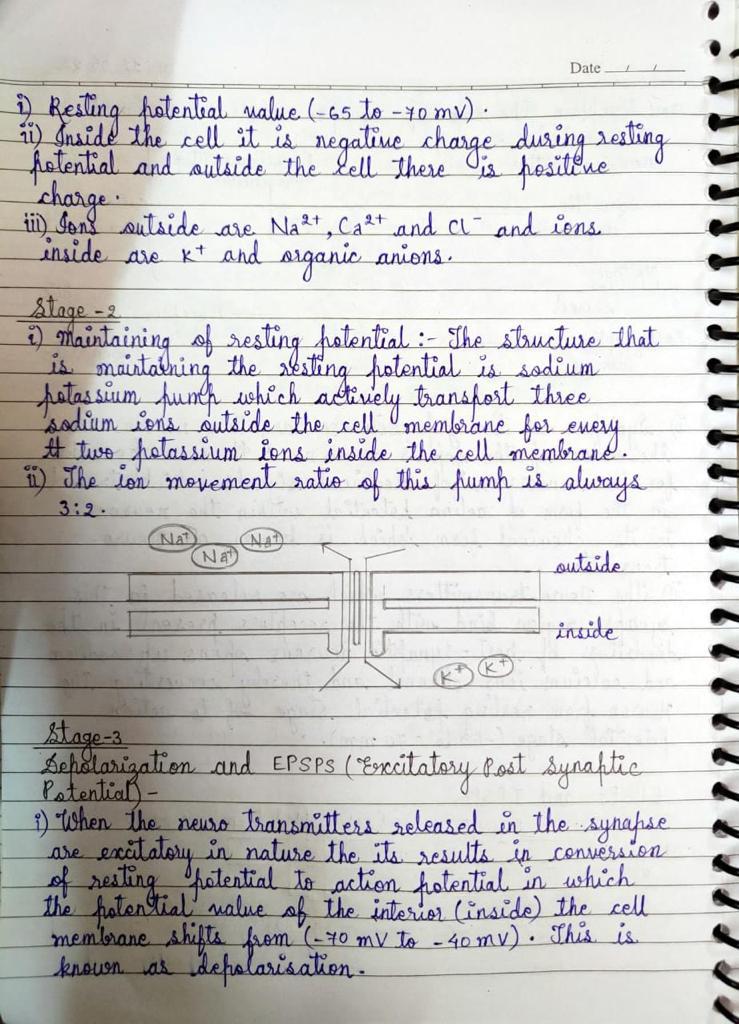 Date __/__/__
i) Resting potential value (-65 to -70 mV).
ii) Inside the cell it is negative charge during resting
potential and outside the cell there is positive
charge.
iii) Ions outside are Na²⁺, Ca²⁺ and Cl⁻ and ions
inside are K⁺ and organic anions.
Stage-2
i) Maintaining of resting potential :- The structure that
is maintaining the resting potential is sodium
potassium pump which actively transport three
sodium ions outside the cell membrane for every
two potassium ions inside the cell membrane.
ii) The ion movement ratio of this pump is always
3:2.
Na⁺ Na⁺ Na⁺
outside
inside
K⁺ K⁺
Stage-3
Depolarization and EPSPS (Excitatory Post Synaptic
Potential) -
i) When the neuro transmitters released in the synapse
are excitatory in nature the its results in conversion
of resting potential to action potential in which
the potential value of the interior (inside) the cell
membrane shifts from (-70 mV to -40 mV). This is
known as depolarisation.